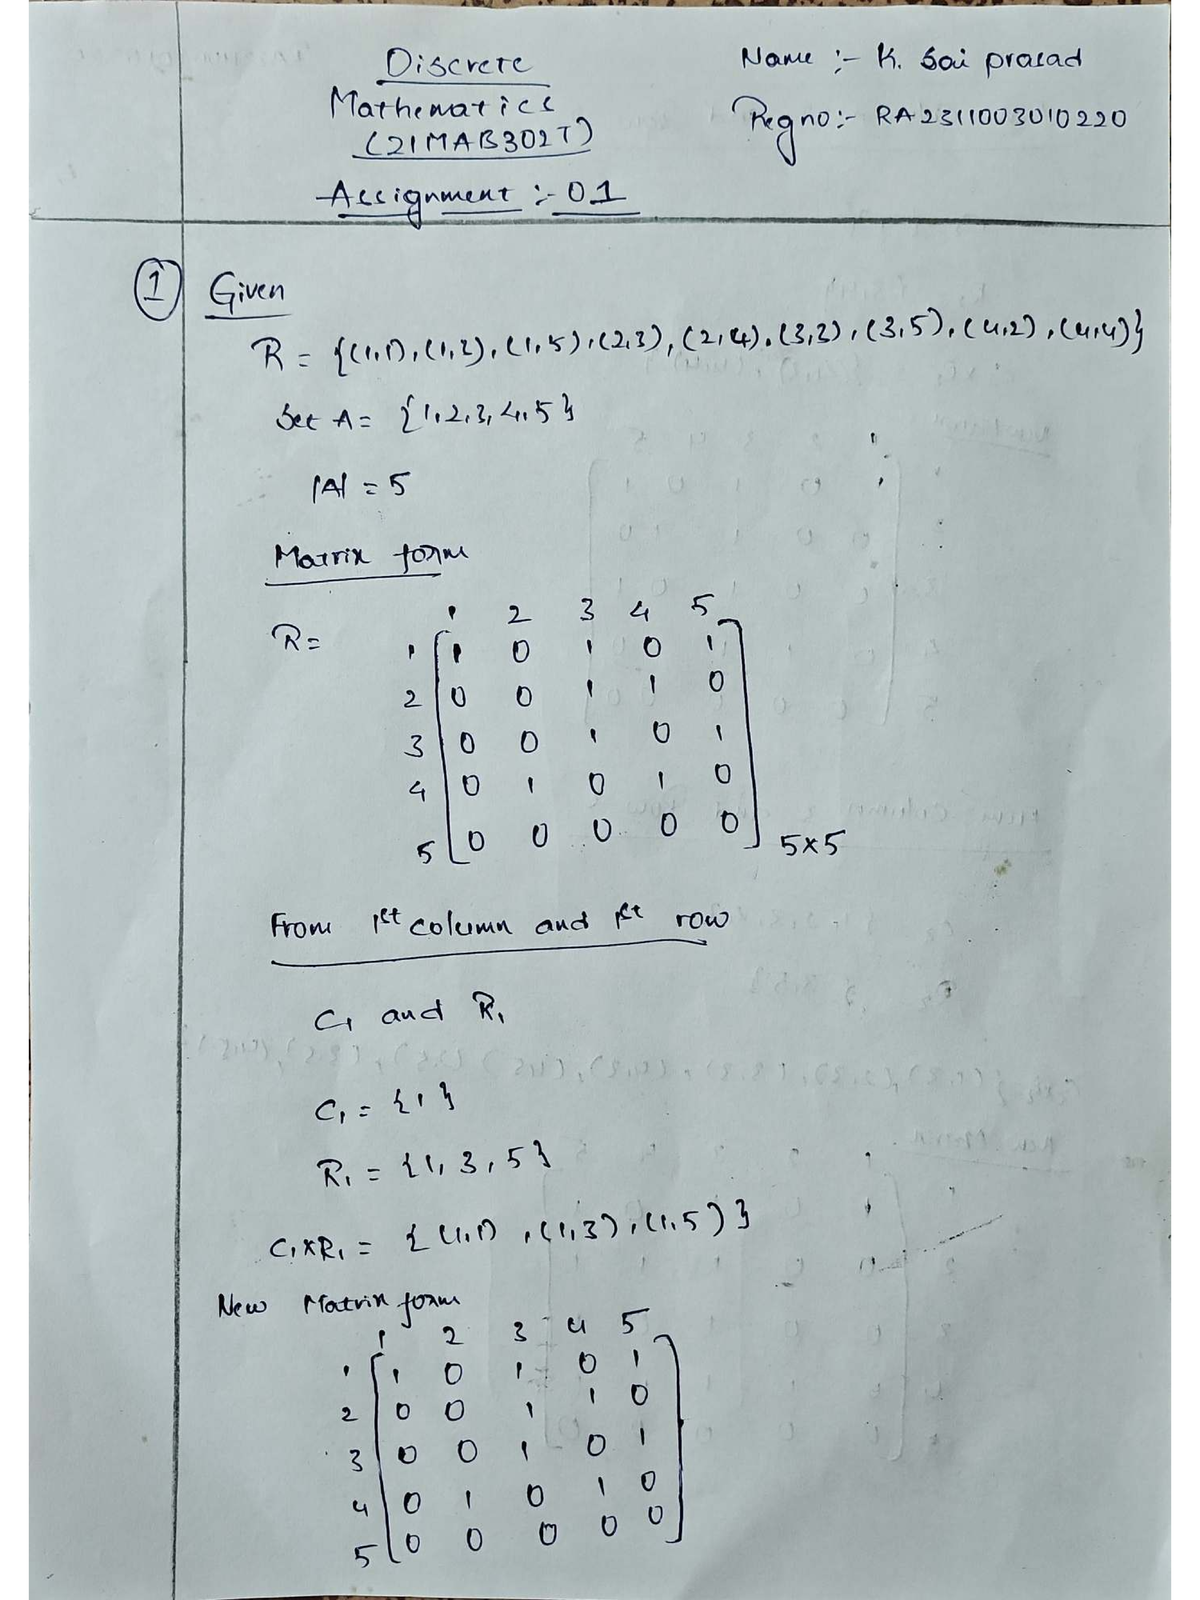 Discrete
Mathematics
(21MAB302T)
Assignment :- 01
Name :- K. Sai prasad
Regno:- RA2311003010220
1 Given
R = {(1,1),(1,3),(1,5),(2,3),(2,4),(3,3),(3,5),(4,2),(4,4)}
Set A = {1,2,3,4,5}
|A| = 5
Matrix form
1 2 3 4 5
R= 1 1 0 1 0 1
2 0 0 1 1 0
3 0 0 1 0 1
4 0 1 0 1 0
5 0 0 0 0 0 5x5
From 1st column and 1st row
C1 and R1
C1 = {1}
R1 = {1,3,5}
C1xR1 = {(1,1),(1,3),(1,5)}
New Matrix form
1 2 3 4 5
1 1 0 1 0 1
2 0 0 1 1 0
3 0 0 1 0 1
4 0 1 0 1 0
5 0 0 0 0 0